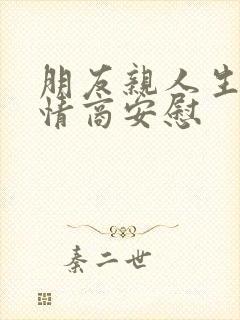 朋友親人生
情商安慰
秦二世